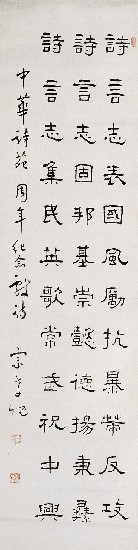 詩言志表國風勵抗暴反攻
詩言志固邦基崇懿德揚秉彝
詩言志集民英歌常武祝中興
中華詩苑周年紀念獻詩
宗孝忱